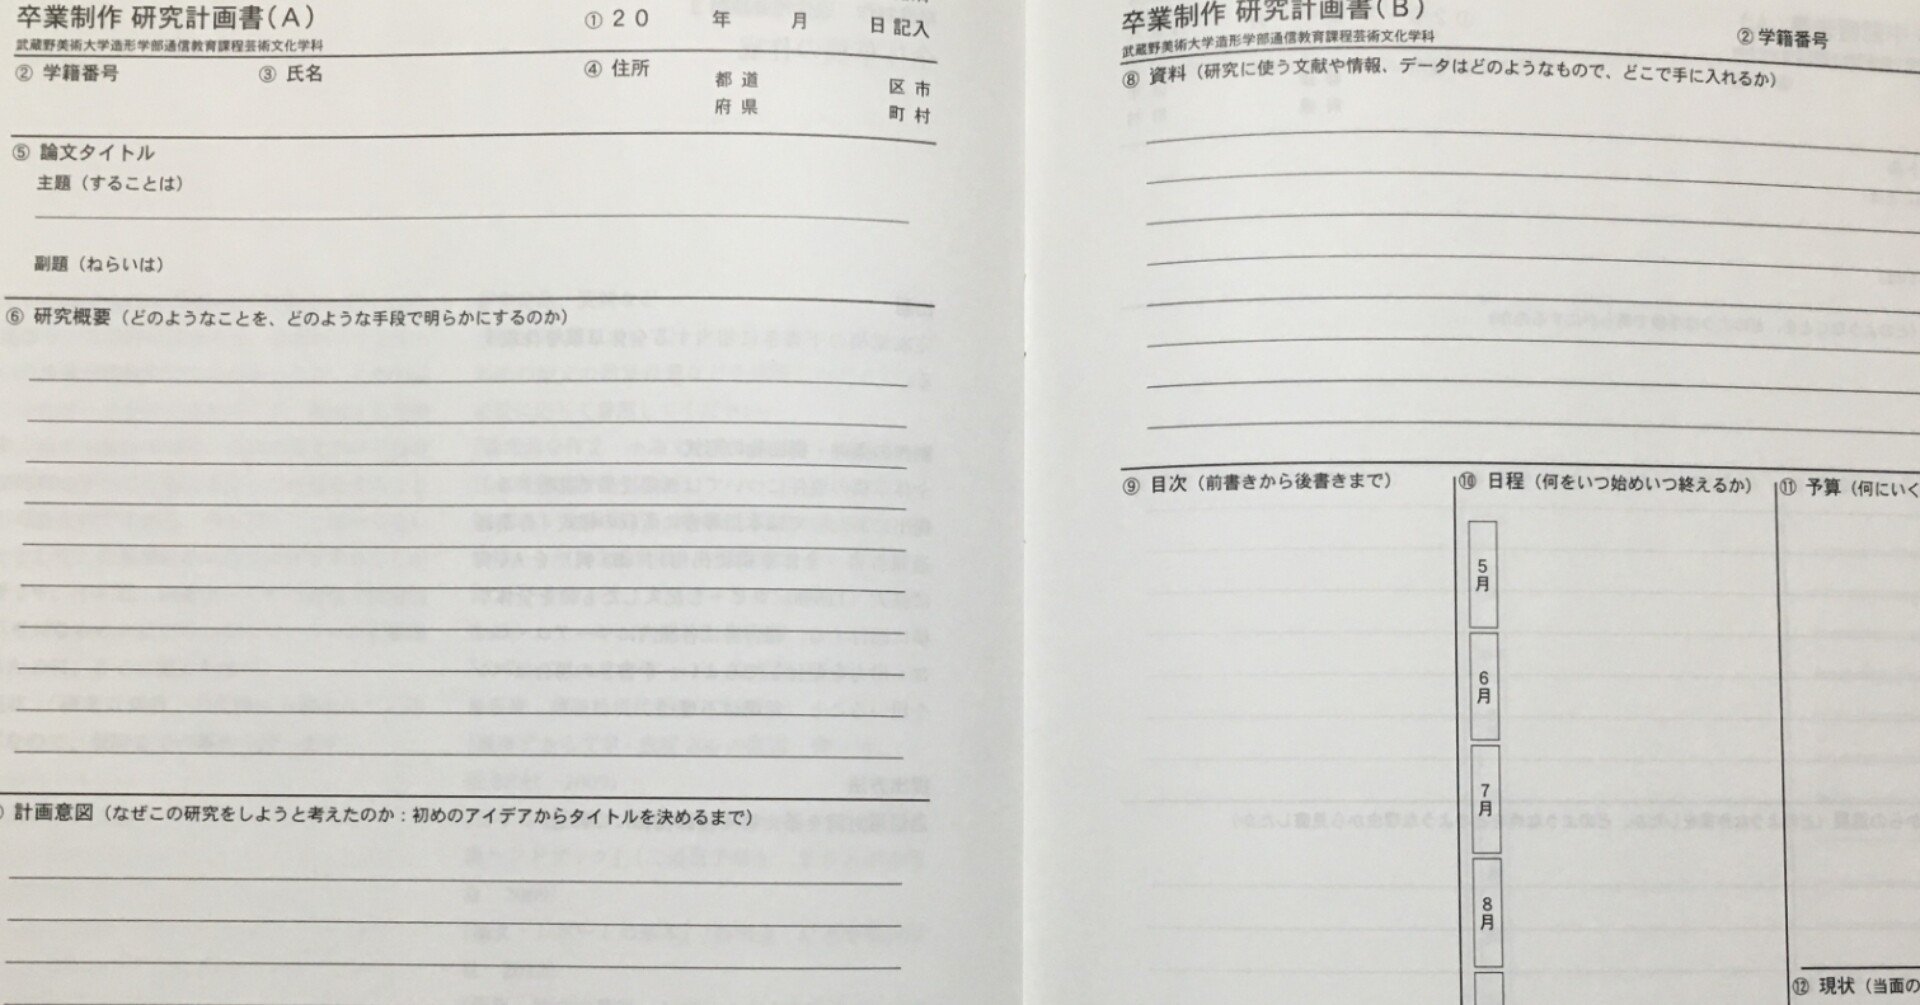 卒業制作 研究計画書(A)
① 20 年 月 日 記入
武蔵野美術大学造形学部通信教育課程芸術文化学科
② 学籍番号 ③ 氏名 ④ 住所
都 道 区 市
府 県 町 村
⑤ 論文タイトル
主題(することは)
副題(ねらいは)
⑥ 研究概要(どのようなことを、どのような手段で明らかにするのか)
計画意図(なぜこの研究をしようと考えたのか:初めのアイデアからタイトルを決めるまで)
卒業制作 研究計画書(B)
武蔵野美術大学造形学部通信教育課程芸術文化学科
② 学籍番号
⑧ 資料(研究に使う文献や情報、データはどのようなもので、どこで手に入れるか)
⑨ 目次(前書きから後書きまで)
⑩ 日程(何をいつ始めいつ終えるか)
5月
6月
7月
8月
⑪ 予算(何にいく
⑫ 現状(当面の